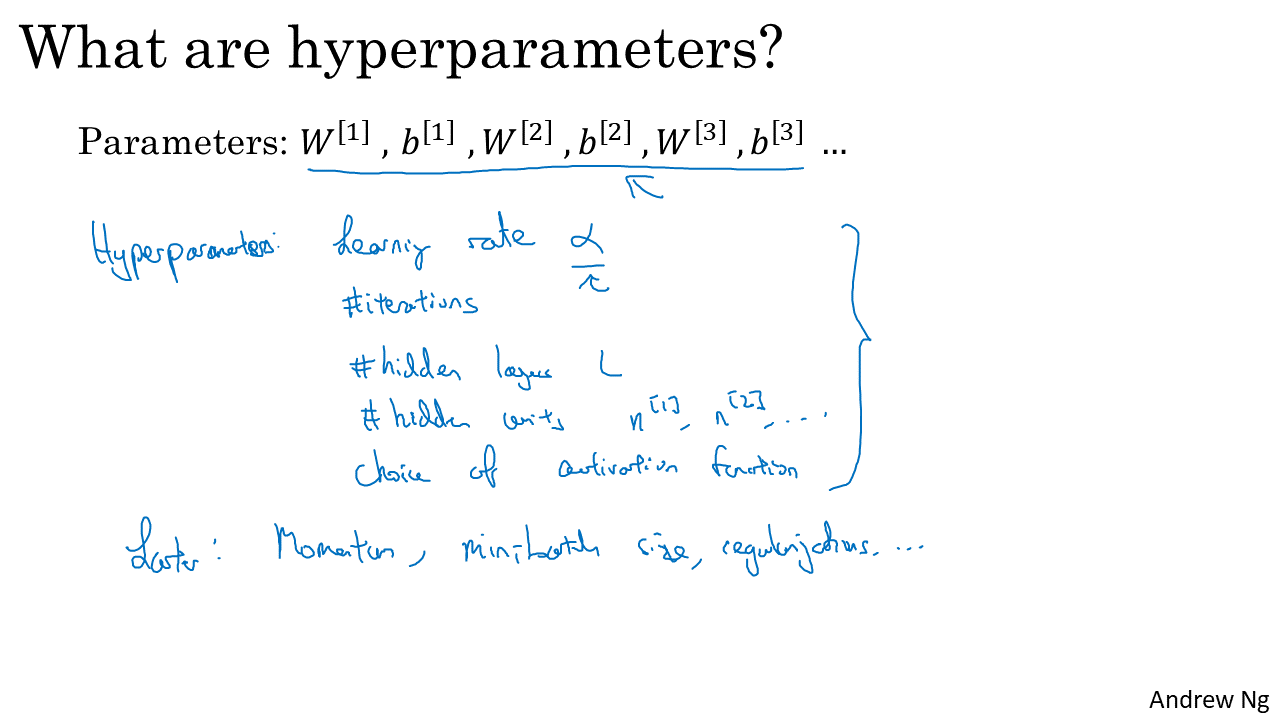 What are hyperparameters?
Parameters: W^[1] , b^[1] , W^[2] , b^[2] , W^[3] , b^[3] ...
Hyperparameters: Learning rate α
#iterations
#hidden layers L
#hidden units n^[1], n^[2], ....
Choice of activation function
Later: Momentum, minibatch size, regularizations, ...
Andrew Ng